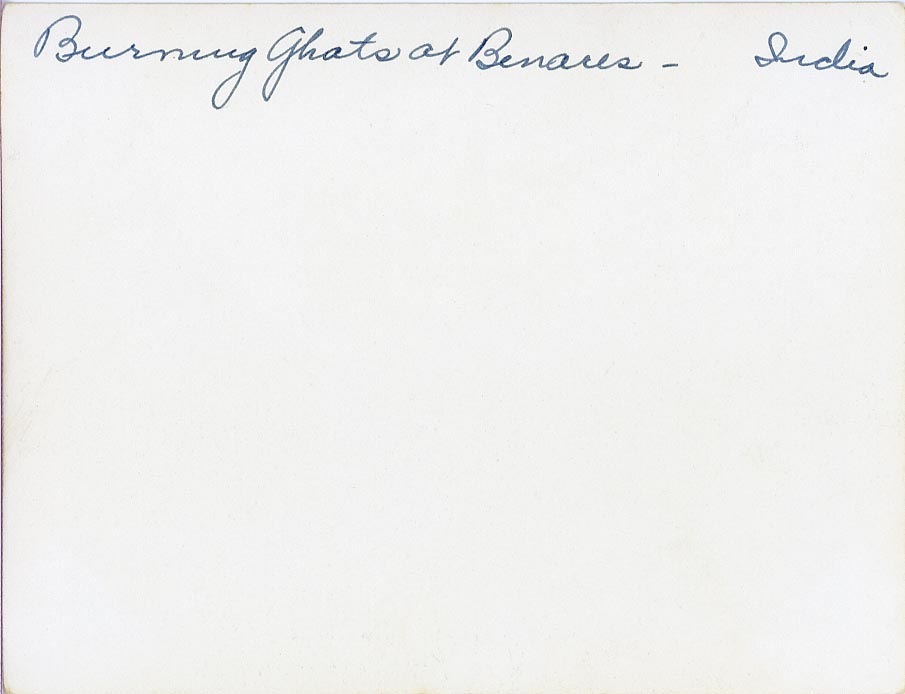 Burning Ghats at Benares - India